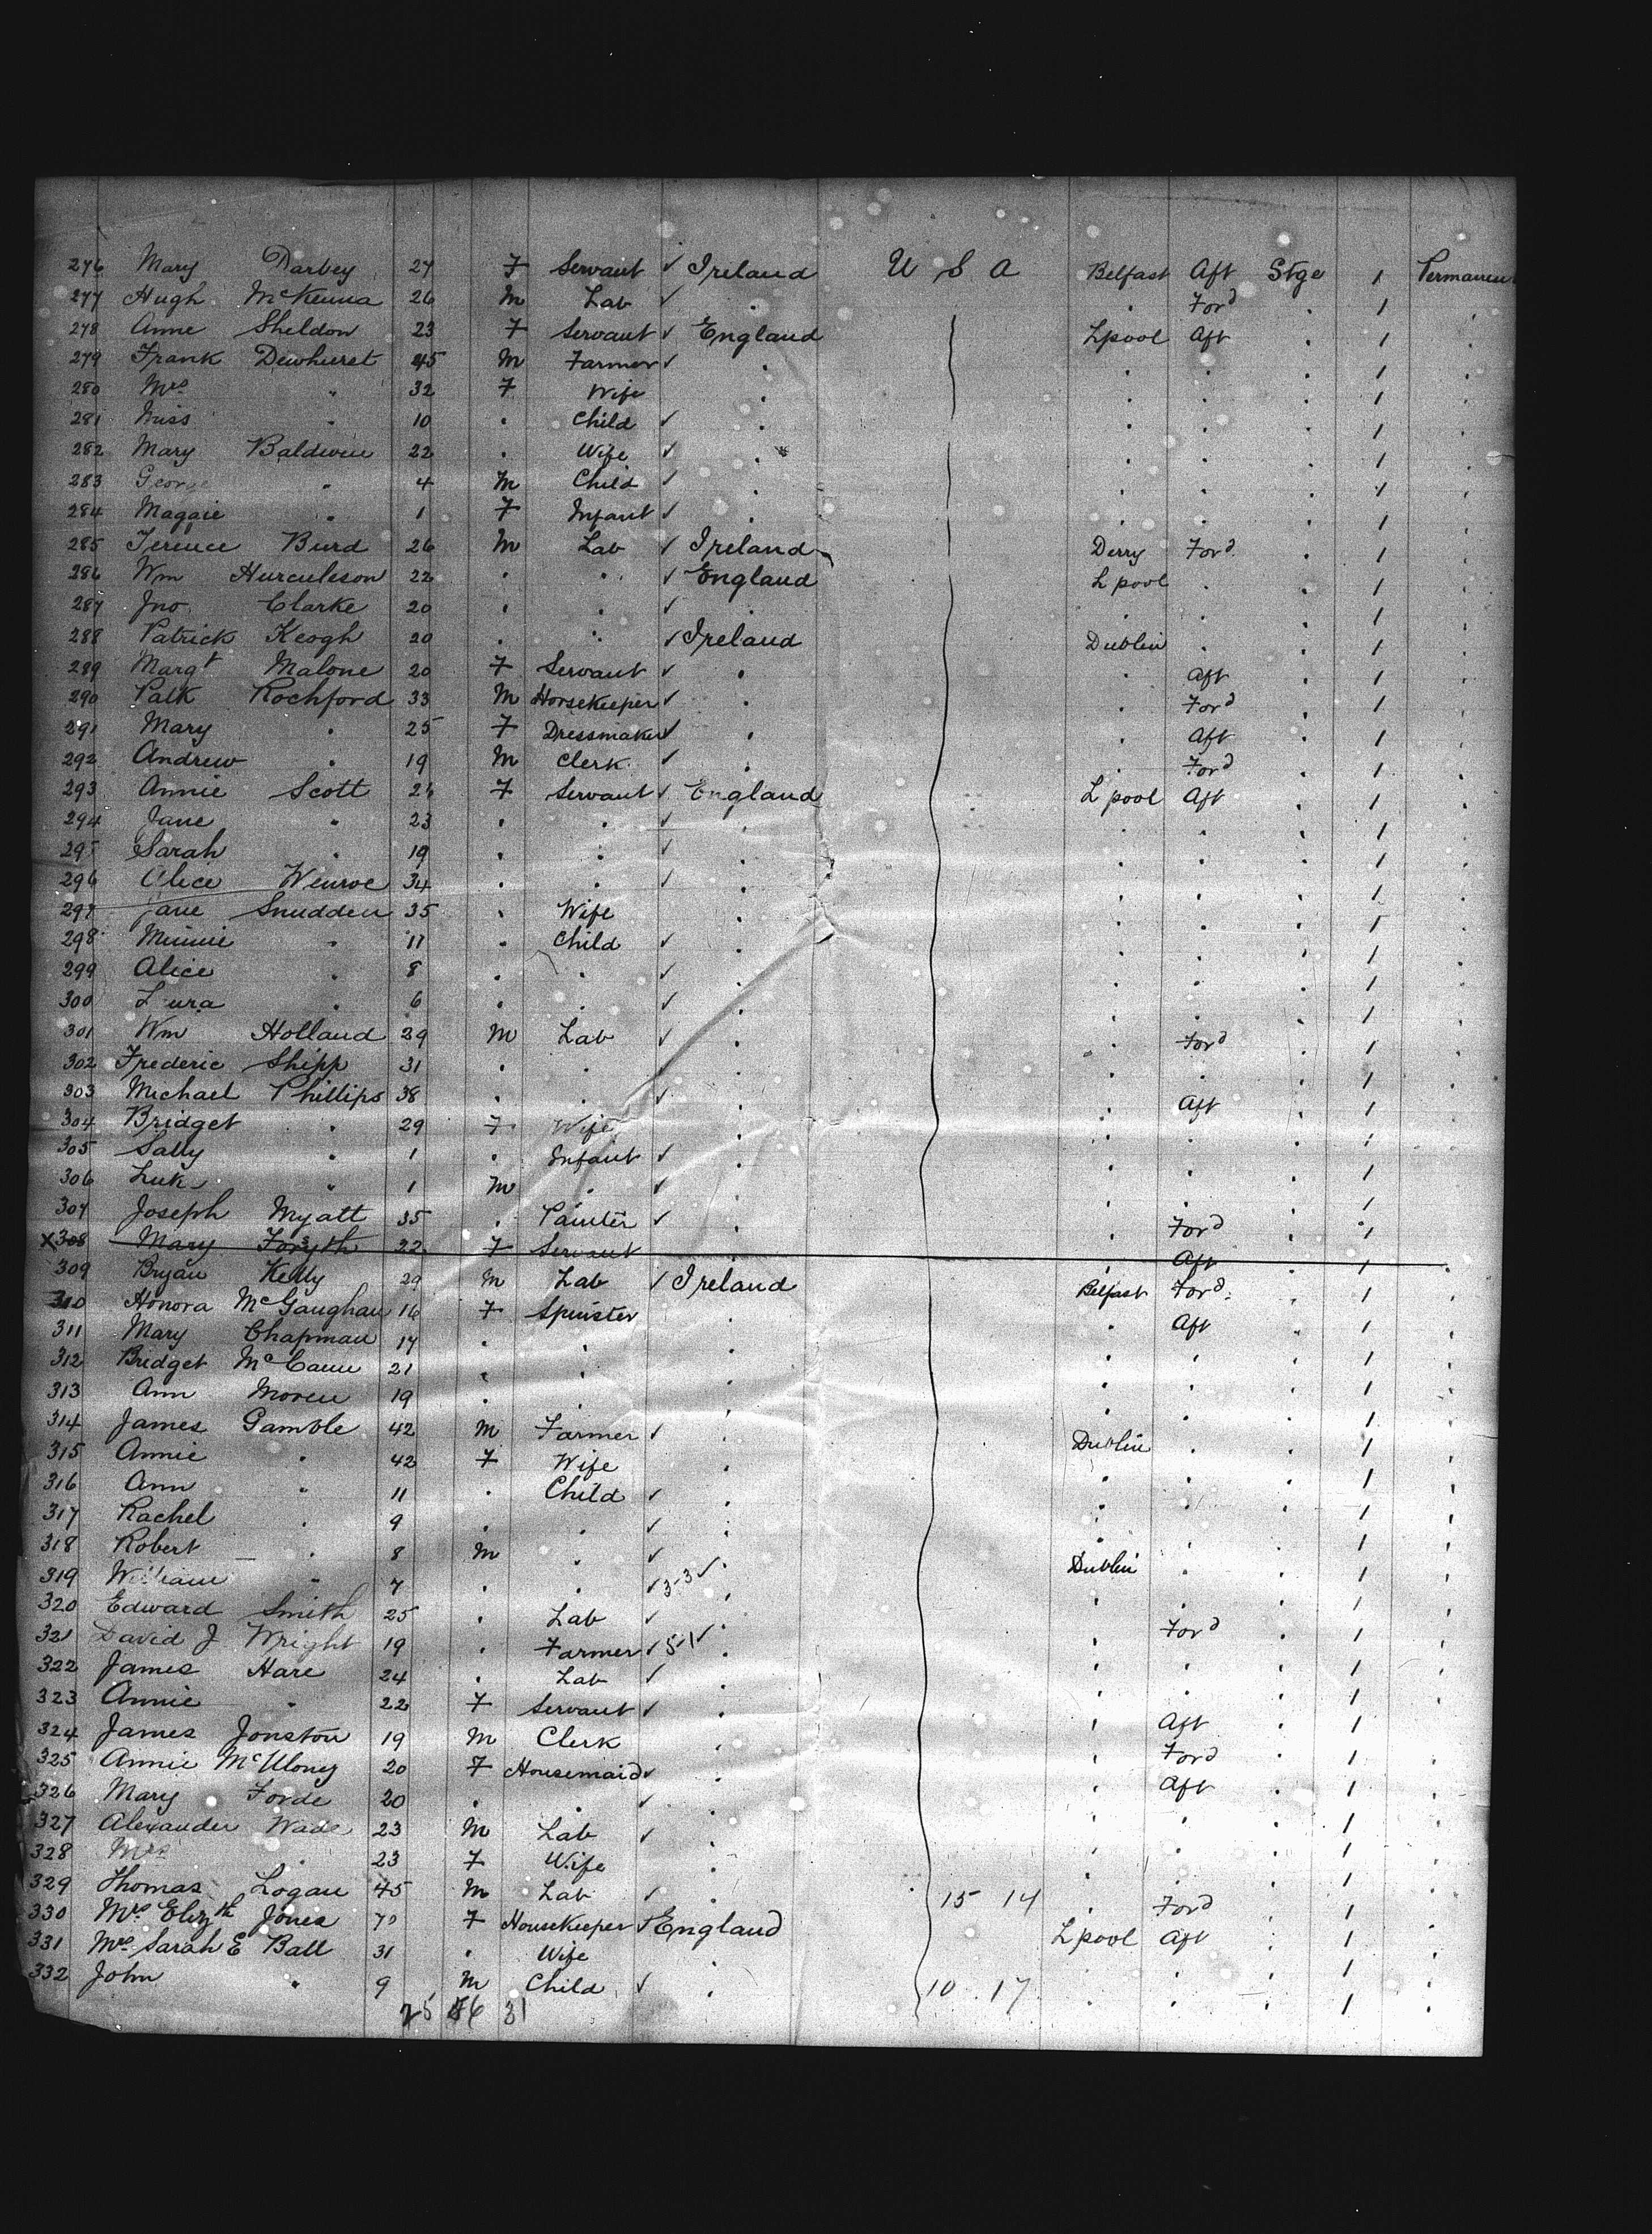 276 Mary Darbey 27 F Servant ✓ Ireland U S A Belfast Aft Stge 1 Permanen
277 Hugh McKenna 26 M Lab ✓ . . Ford . 1 .
278 Anne Sheldon 23 F Servant ✓ England Lpool Aft . 1 .
279 Frank Dewhurst 45 M Farmer ✓ . . . . 1 .
280 Mrs " 32 F Wife . . . . 1 .
281 Miss " 10 . Child ✓ . . . . 1 .
282 Mary Baldwin 22 . Wife ✓ . . . . 1 .
283 George " 4 M Child ✓ . . . . 1 .
284 Maggie " 1 F Infant ✓ . . . . 1 .
285 Terence Burd 26 M Lab ✓ Ireland Derry Ford . 1 .
286 Wm Hurculeson 22 . . ✓ England Lpool . . 1 .
287 Jno. Clarke 20 . . ✓ . . . . 1 .
288 Patrick Keogh 20 . . ✓ Ireland Dublin . . 1 .
289 Margt Malone 20 F Servant ✓ . . Aft . 1 .
290 Patk Rochford 33 M Horsekeeper ✓ . . Ford . 1 .
291 Mary " 25 F Dressmaker ✓ . . Aft . 1 .
292 Andrew " 19 M Clerk ✓ . . Ford . 1 .
293 Annie Scott F Servant ✓ England Lpool Aft . 1 .
294 Jane " 23 . . ✓ . . . . 1 .
295 Sarah " 19 . . ✓ . . . . 1 .
296 Alice 34 . . ✓ . . . . 1 .
297 Jane Snudden 35 . Wife . . . . 1 .
298 Minnie " 11 . Child ✓ . . . . 1 .
299 Alice " 8 . . ✓ . . . . 1 .
300 Lura " 6 . . ✓ . . . . 1 .
301 Wm Holland 29 M Lab ✓ . . Ford . 1 .
302 Frederic Shipp 31 . . . . . . 1 .
303 Michael Phillips 38 . . ✓ . . Aft . 1 .
304 Bridget " 29 F Wife . . . . 1 .
305 Sally " 1 . Infant ✓ . . . . 1 .
306 Luk " 1 M . ✓ . . . . 1 .
307 Joseph Myatt 35 . Painter ✓ . . Ford . 1 .
x308 Mary Forsyth 22 F Servant . Aft . 1 .
309 Bryan Kelly 29 M Lab ✓ Ireland Belfast Ford . 1 .
310 Honora McGaughan 16 F Spinster . . Aft . 1 .
311 Mary Chapman 17 . . . . . . 1 .
312 Bridget McCann 21 . . . . . . 1 .
313 Ann Moren 19 . . . . . . 1 .
314 James Gamble 42 M Farmer ✓ . Dublin . . 1 .
315 Annie " 42 F Wife . . . . 1 .
316 Ann " 11 . Child ✓ . . . . 1 .
317 Rachel " 9 . . ✓ . . . . 1 .
318 Robert " 8 M . ✓ . Dublin . . 1 .
319 William " 7 . . ✓ 3-3 ✓ . . . . 1 .
320 Edward Smith 25 . Lab ✓ . . Ford . 1 .
321 David J Wright 19 . Farmer ✓ 5-1 ✓ . . . . 1 .
322 James Hare 24 . Lab ✓ . . . . 1 .
323 Annie " 22 F Servant ✓ . . Aft . 1 .
324 James Jonston 19 M Clerk . . Ford . 1 .
325 Annie 20 F Housemaid ✓ . . Aft . 1 .
326 Mary Forde 20 . . ✓ . . . . 1 .
327 Alexander Wade 23 M Lab ✓ . . . . 1 .
328 Mrs " 23 F Wife . . . . 1 .
329 Thomas Logan 45 M Lab ✓ . 15 14 . Ford . 1 .
330 Mrs Elizth Jones F Housekeeper ✓ England Lpool Aft . 1 .
331 Mrs Sarah E Ball 31 . Wife . . . . 1 .
332 John " 9 M Child ✓ . 10 . 17 . . . 1 .
31